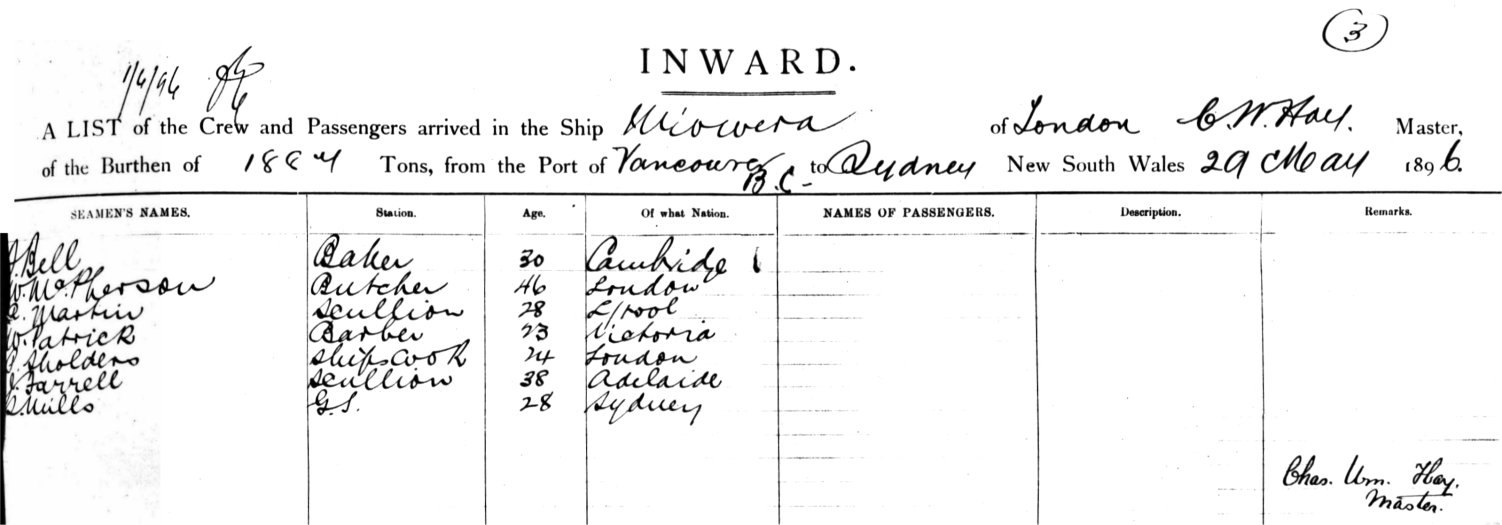 3
INWARD.
1/6/96
A LIST of the Crew and Passengers arrived in the Ship Miowera of London C. W. Hay. Master,
of the Burthen of 1887 Tons, from the Port of Vancouver B.C. to Sydney New South Wales 29 May 1896.
SEAMEN'S NAMES. Station. Age. Of what Nation. NAMES OF PASSENGERS. Description. Remarks.
J. Bell Baker 30 Cambridge 1
W. McPherson Butcher 46 London
Martin Scullion 28 L'pool
W. Patrick Barber 23 Victoria
Sholders Ships Cook 24 London
J. Farrell Scullion 38 Adelaide
Mills G.S. 28 Sydney
Chas. Wm. Hay.
Master.